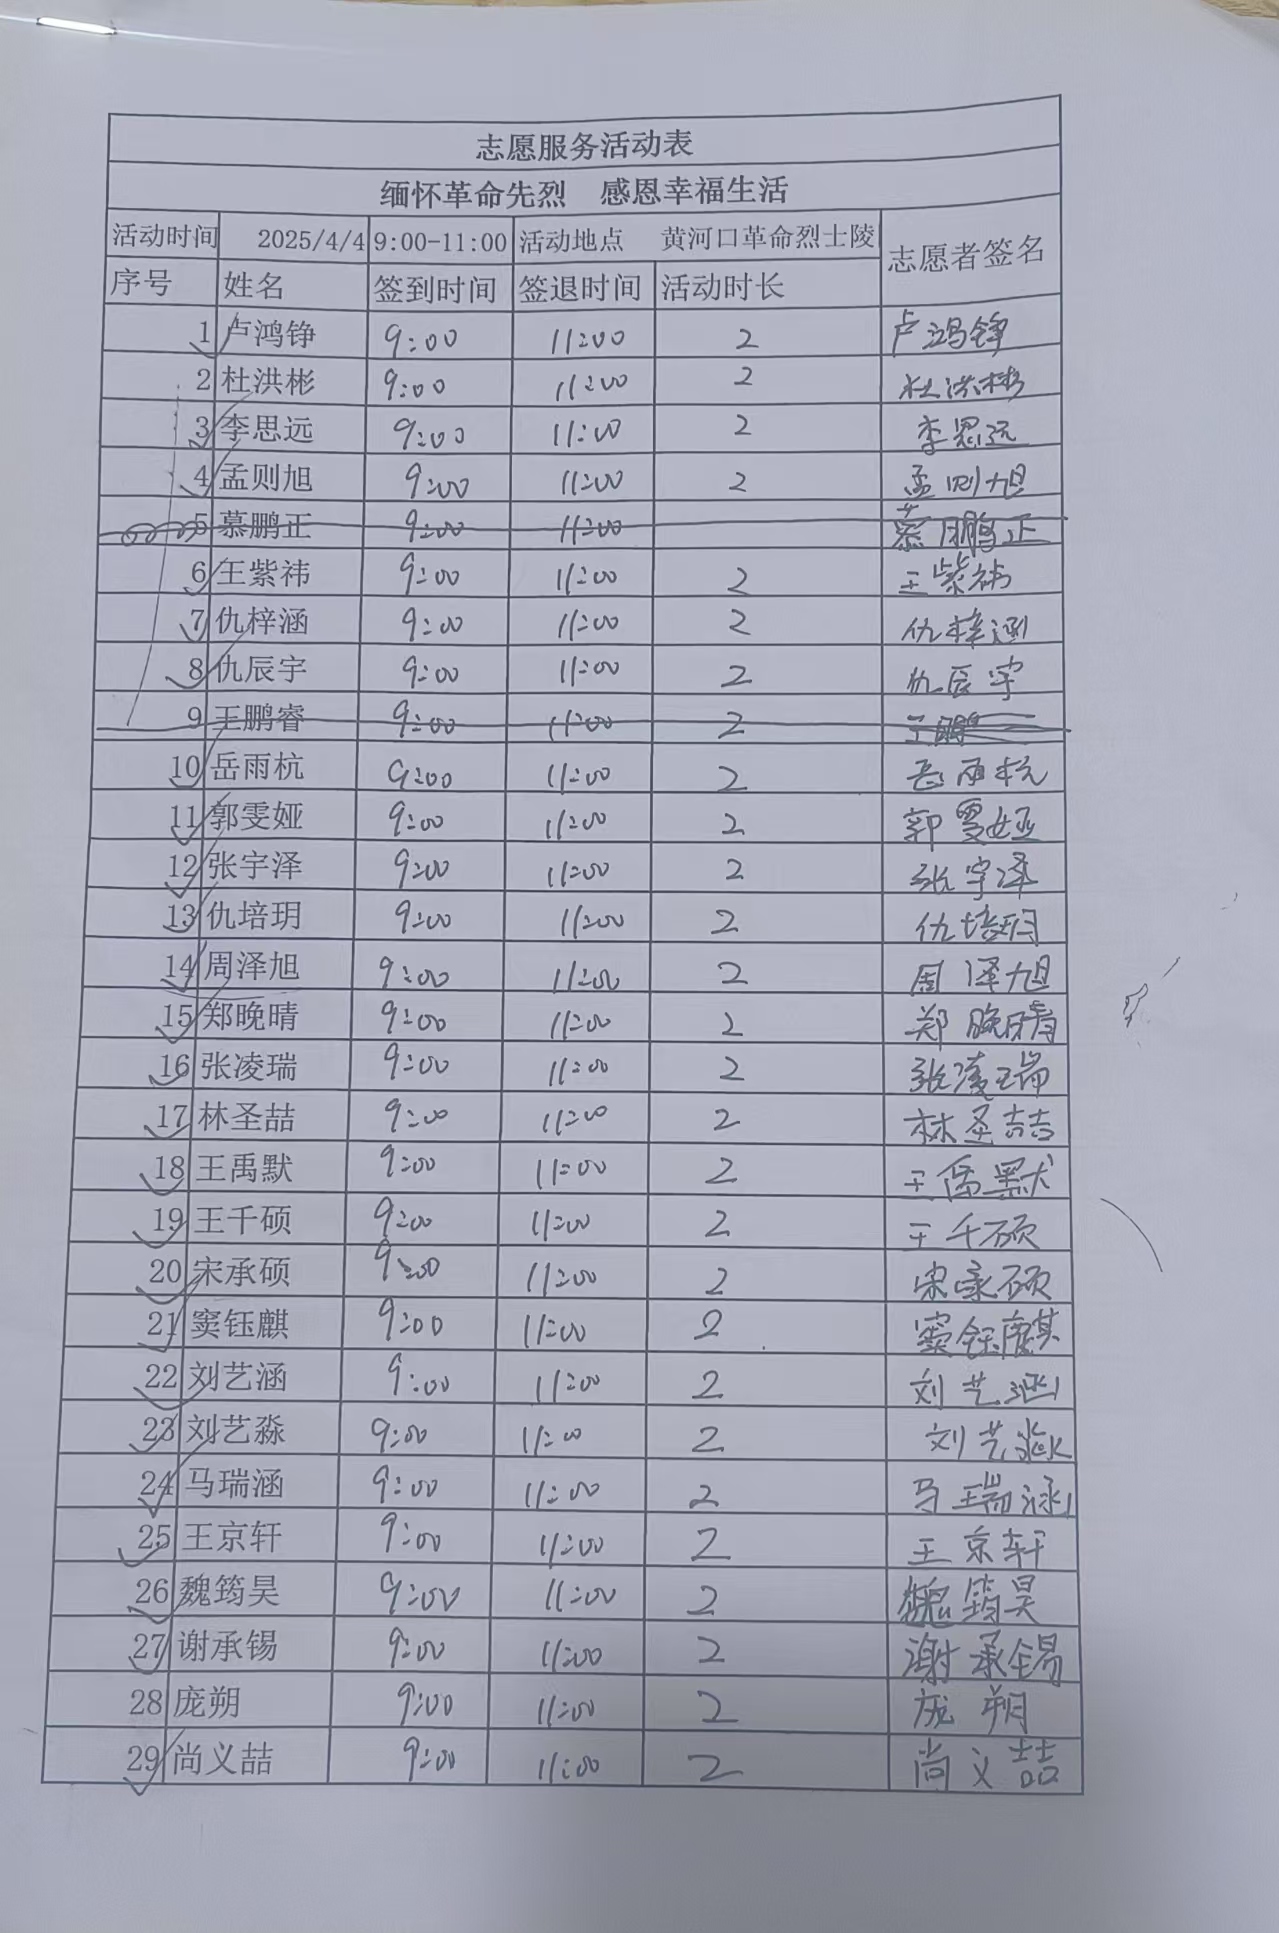 志愿服务活动表
缅怀革命先烈 感恩幸福生活
活动时间 2025/4/4 9:00-11:00 活动地点 黄河口革命烈士陵 志愿者签名
序号 姓名 签到时间 签退时间 活动时长
1 卢鸿铮 9:00 11:00 2 卢鸿铮
2 杜洪彬 9:00 11:00 2 杜洪彬
3 李思远 9:00 11:00 2 李思远
4 孟则旭 9:00 11:00 2 孟则旭
5 慕鹏正 9:00 11:00 慕鹏正
6 王紫祎 9:00 11:00 2 王紫祎
7 仇梓涵 9:00 11:00 2 仇梓涵
8 仇辰宇 9:00 11:00 2 仇辰宇
9 王鹏睿 9:00 11:00 2 王鹏
10 岳雨杭 9:00 11:00 2 岳雨杭
11 郭雯娅 9:00 11:00 2 郭雯娅
12 张宇泽 9:00 11:00 2 张宇泽
13 仇培玥 9:00 11:00 2 仇培玥
14 周泽旭 9:00 11:00 2 周泽旭
15 郑晚晴 9:00 11:00 2 郑晚晴
16 张凌瑞 9:00 11:00 2 张凌瑞
17 林圣喆 9:00 11:00 2 林圣喆
18 王禹默 9:00 11:00 2 王禹默
19 王千硕 9:00 11:00 2 王千硕
20 宋承硕 9:00 11:00 2 宋承硕
21 窦钰麒 9:00 11:00 2 窦钰麒
22 刘艺涵 9:00 11:00 2 刘艺涵
23 刘艺淼 9:00 11:00 2 刘艺淼
24 马瑞涵 9:00 11:00 2 马瑞涵
25 王京轩 9:00 11:00 2 王京轩
26 魏筠昊 9:00 11:00 2 魏筠昊
27 谢承锡 9:00 11:00 2 谢承锡
28 庞朔 9:00 11:00 2 庞朔
29 尚义喆 9:00 11:00 2 尚义喆